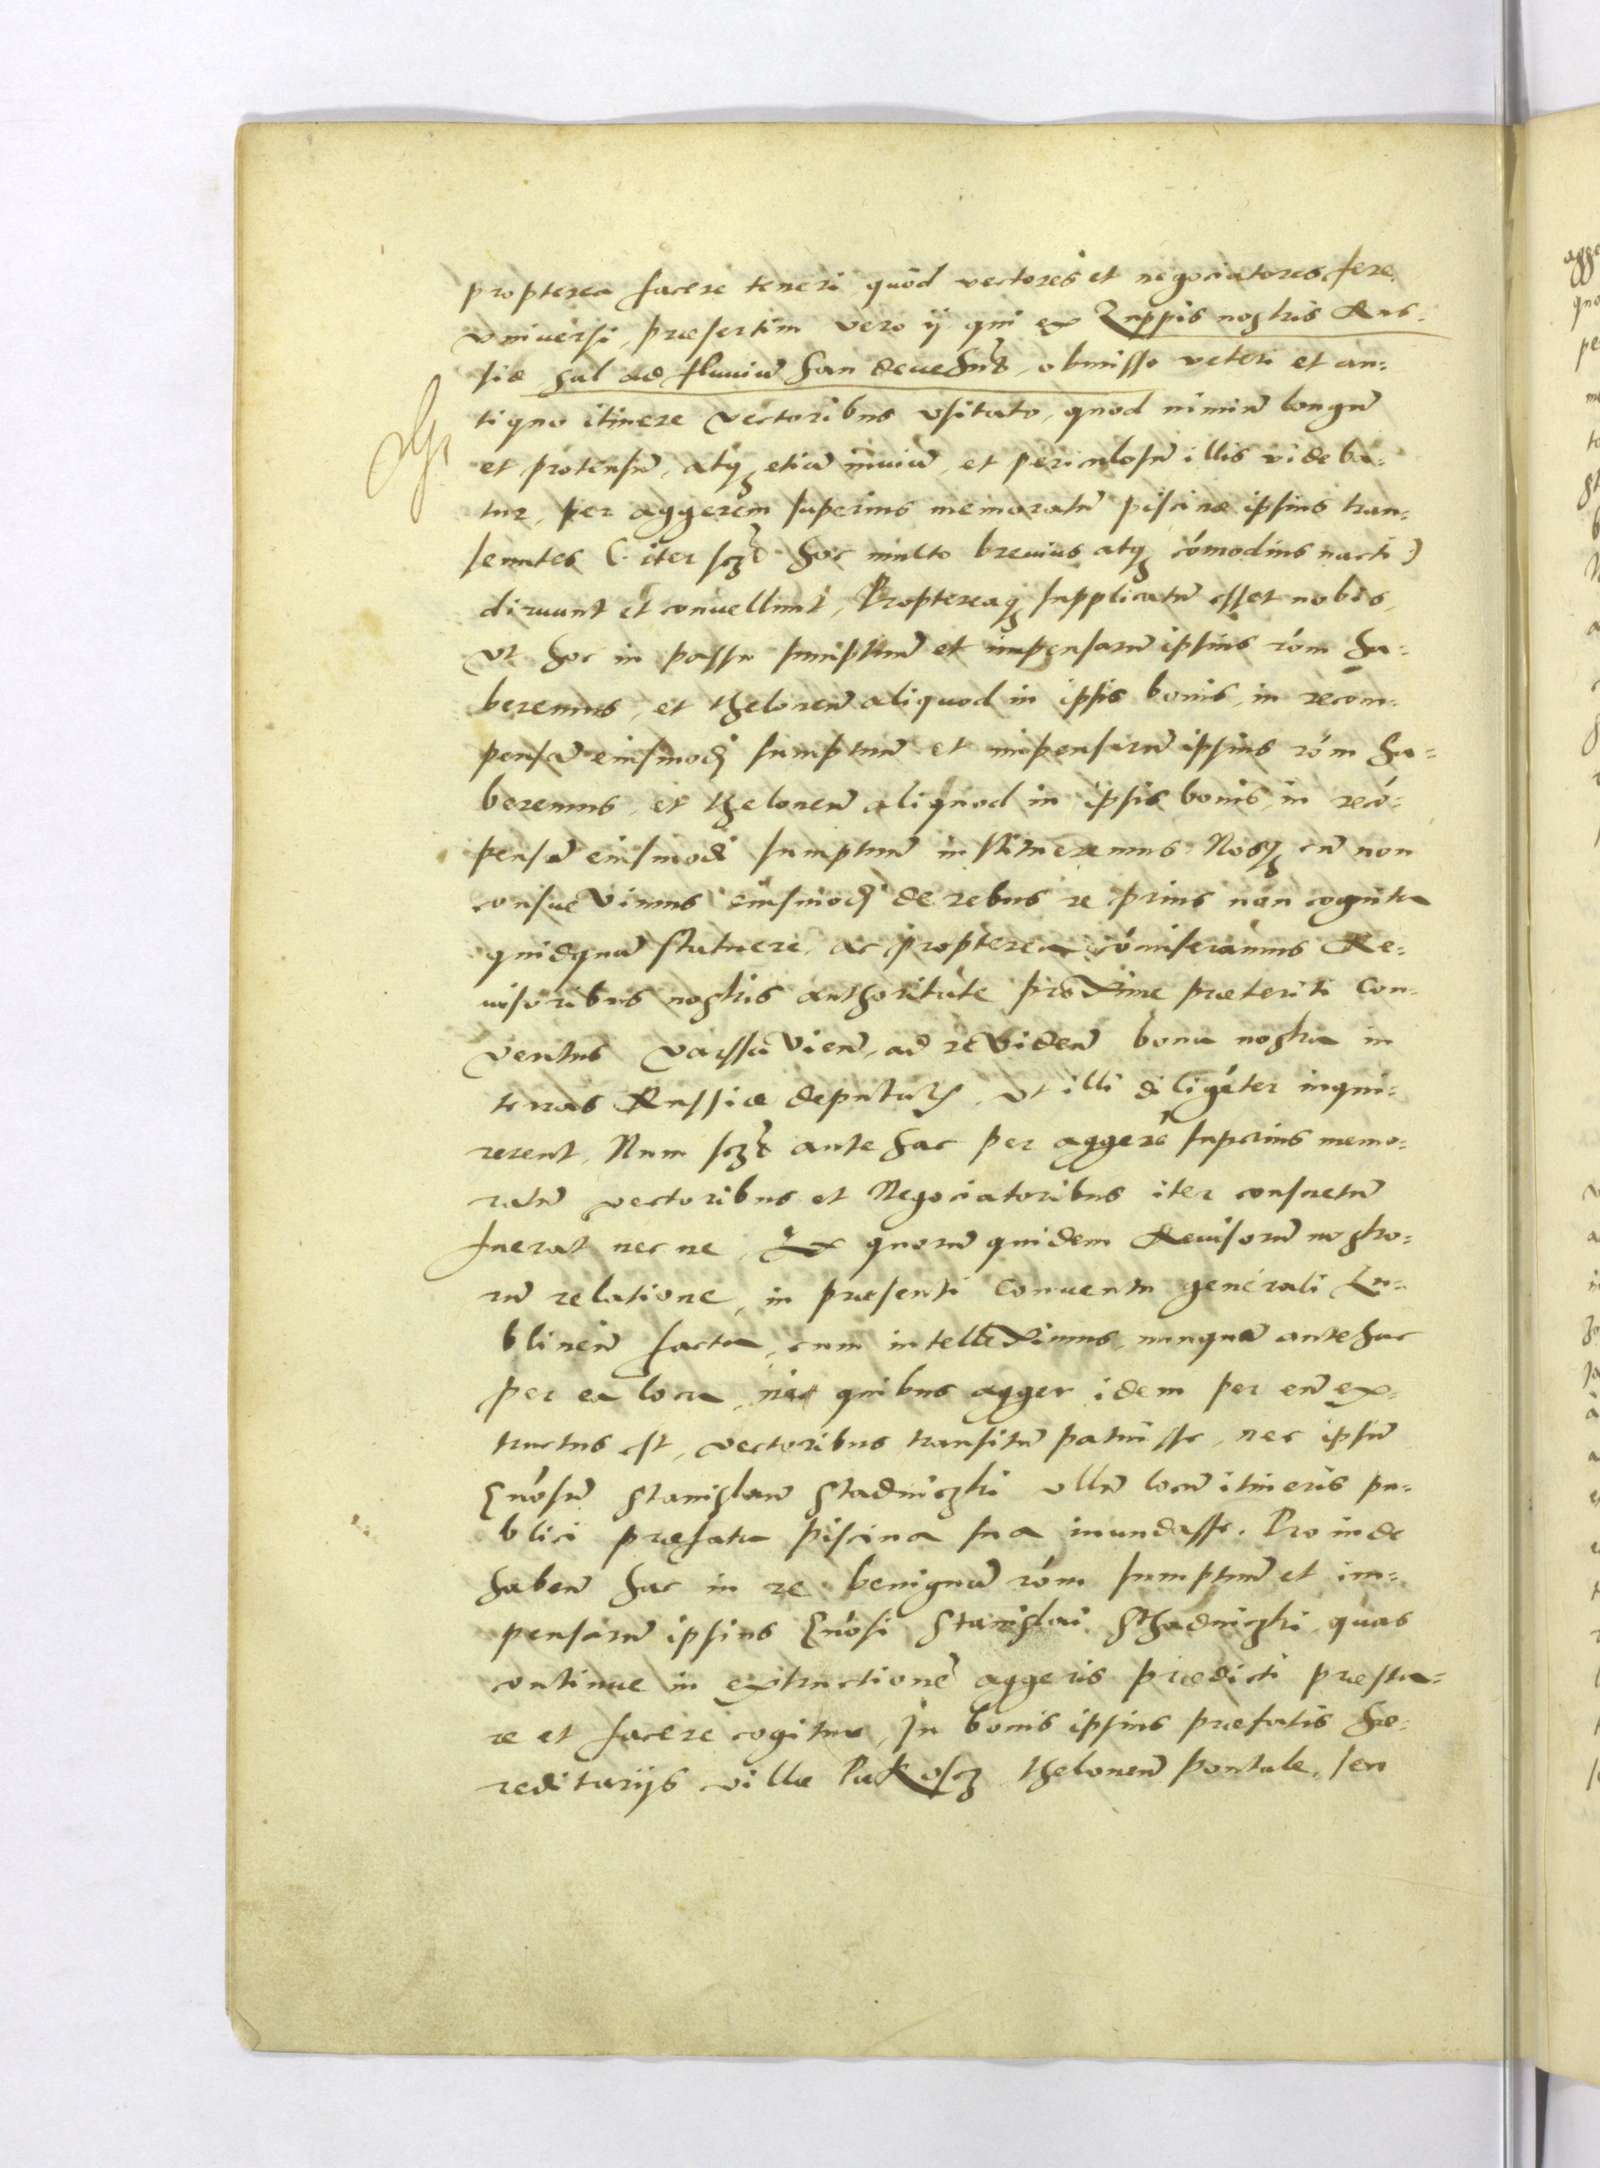 propterea facere teneri, quod vectores et negociatores fere
vniuersi, præsertim vero ij qui ex Zuppis nostris Rus-
siæ sal ad fluuiũ San deuehũt, obmisso veteri et an-
tiquo itinere vectoribus vsitato, quod nimiũ longũ
et protensũ, atq3 etiã inuiũ, et periculosũ illis videba-
tur, per aggerem superius memoratũ piscinæ ipsius tran-
seuntes (: iter sczt hoc multo breuius atq3 cõmodius nacti :)
diruunt et conuellunt, Proptereaq3 supplicatũ esset nobis,
vt hoc in passu sumptuũ et impensarũ ipsius rõm ha-
beremus, et theloneũ aliquod in ipsis bonis, in recom-
pensã eiusmodj sumptuũ et impensarũ ipsius rõm ha-
beremus, et theloneũ aliquod in ipsis bonis, in recõ-
pensã eiusmodi sumptuũ institueremus. Nosq3 cũ non
consueVimus eiusmodj de rebus re prius non cognita
quidquã statuere, ac propterea cõmiseramus Re-
uisoribus nostris authoritate proxime præteriti Con-
ventus Varssavieñ, ad revideñ bona nostra in
terris Russiæ deputatis, vt illi diligẽter inqui-
rerent, Num sczt ante hac per aggerẽ superius memo-
ratũ vectoribus et Negociatoribus iter consuetũ
fuerat nec ne, Ex quorũ quidem Reuisorũ nostro-
rũ relatione, in præsenti Conuentu generali Lu-
blineñ facta, cum intelleximus, nunquã antehac
per ea loca, in quibus agger idem per eũ ex-
tructus est, vectoribus transitũ patuisse, nec ipsũ
Gnõsũ Stanislaũ Stadniczki vllũ locũ itineris pu-
blici præfata piscina sua inundasse. Proinde
habeñ hac in re benignã rõm sumptuũ et im-
pensarũ ipsius Gnõsi Stanislai Sthadniczki, quas
continue in extructionẽ aggeris prædicti præsta-
re et facere cogitur, In bonis ipsius præfatis hæ-
reditarijs villæ Pakoscz theloneũ pontale, seu